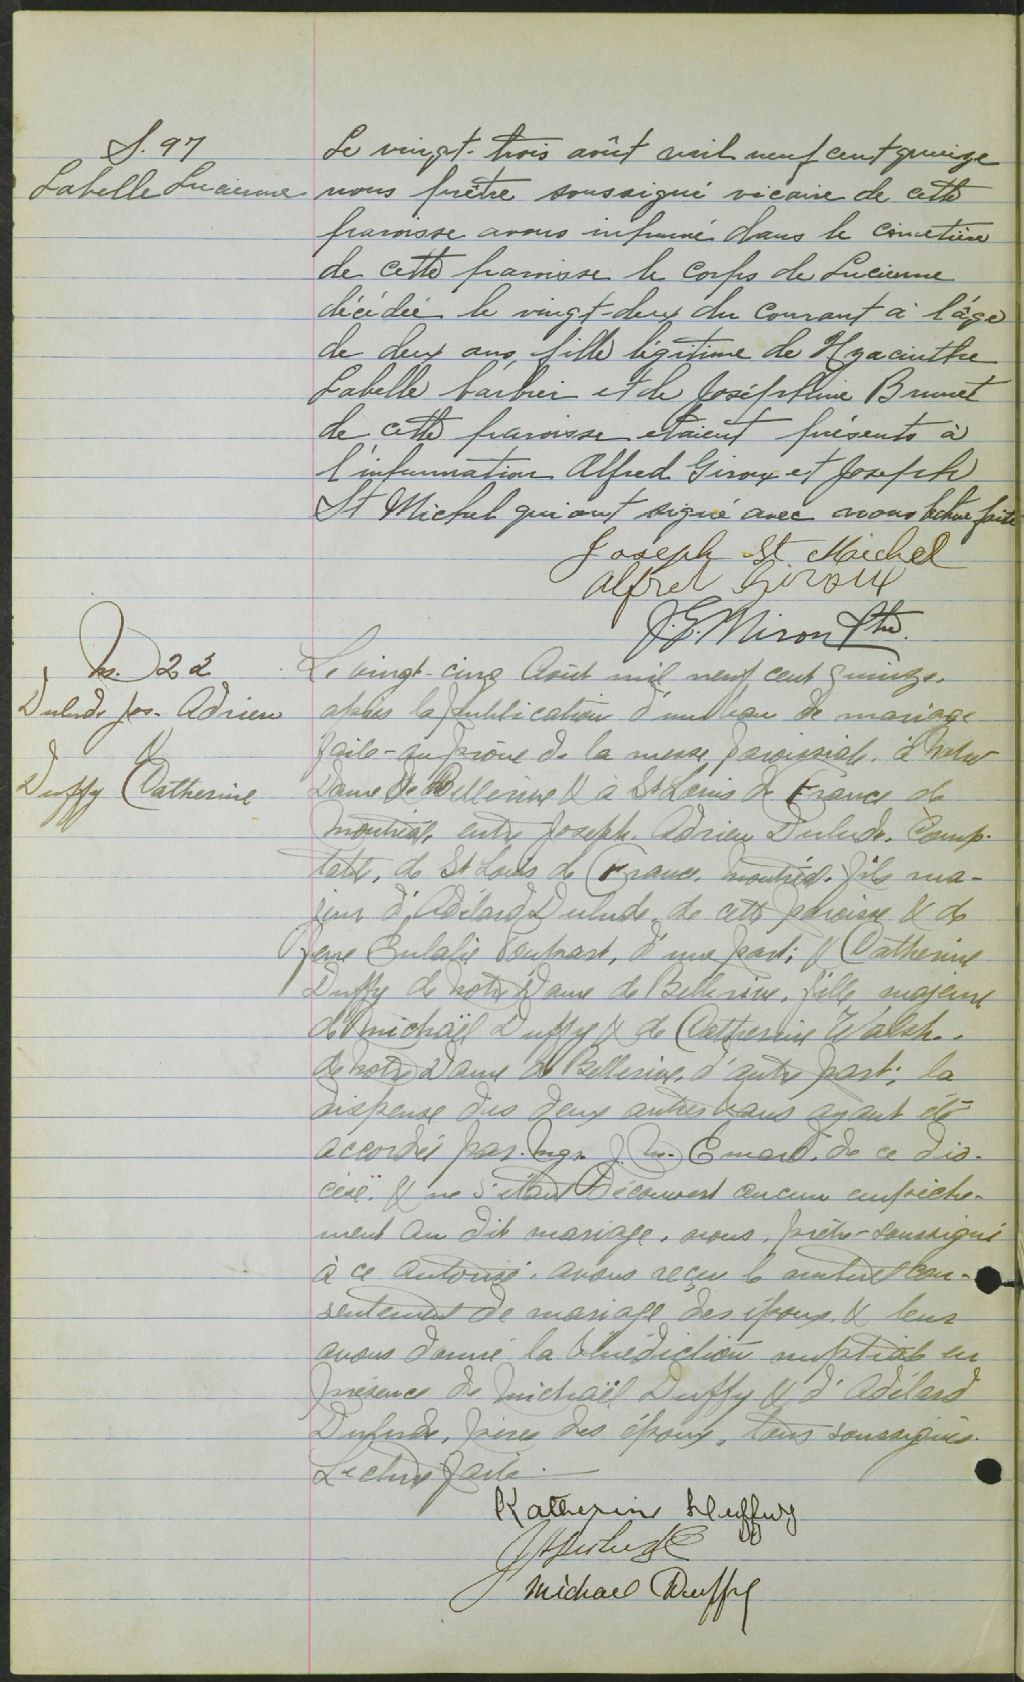 S. 97
Labelle Lucienne
Le vingt-trois août mil neuf cent quinze
nous prêtre soussigné vicaire de cette
paroisse avons inhumé dans le cimetière
de cette paroisse le corps de Lucienne
décédée le vingt-deux du courant à l'âge
de deux ans, fille légitime de Hyacinthe
Labelle barbier et de Joséphine Brunet
de cette paroisse etaient présents à
l'inhumation Alfred Giroux et Joseph
St Michel qui ont signé avec nous lecture faite
Joseph St Michel
Alfred Giroux
J. E. Miron Ptre.
M. 22
Dulude Jos. Adrien
&
Duffy Catherine
Le vingt-cinq Août mil neuf cent quinze,
après la publication d'un ban de mariage
faite au prône de la messe paroissiale, à Notre
Dame de Bellerive & à St Louis de France de
Montréal, entre Joseph Adrien Dulude, Comp-
table, de St Louis de France, Montréal, fils ma-
jeur d'Adélard Dulude de cette paroisse & de
feue Eulalie, d'une part; & Catherine
Duffy de Notre Dame de Bellerive, fille majeure
de Michaël Duffy & de Catherine Walsh,
de Notre Dame de Bellerive, d'autre part; la
dispense des deux autres bans ayant été
accordée par Mgr. J. M. Emard, de ce dio-
cèse, & ne s'étant découvert aucun empêche-
ment au dit mariage, nous, prêtre-soussigné
à ce autorisé, avons reçu le mutuel con-
sentement de mariage des époux & leur
avons donné la bénédiction nuptiale en
présence de Michaël Duffy & d'Adélard
Dulude, pères des époux, tous soussignés.
Lecture faite.
Katherine Duffy
J A Dulude
Michael Duffy